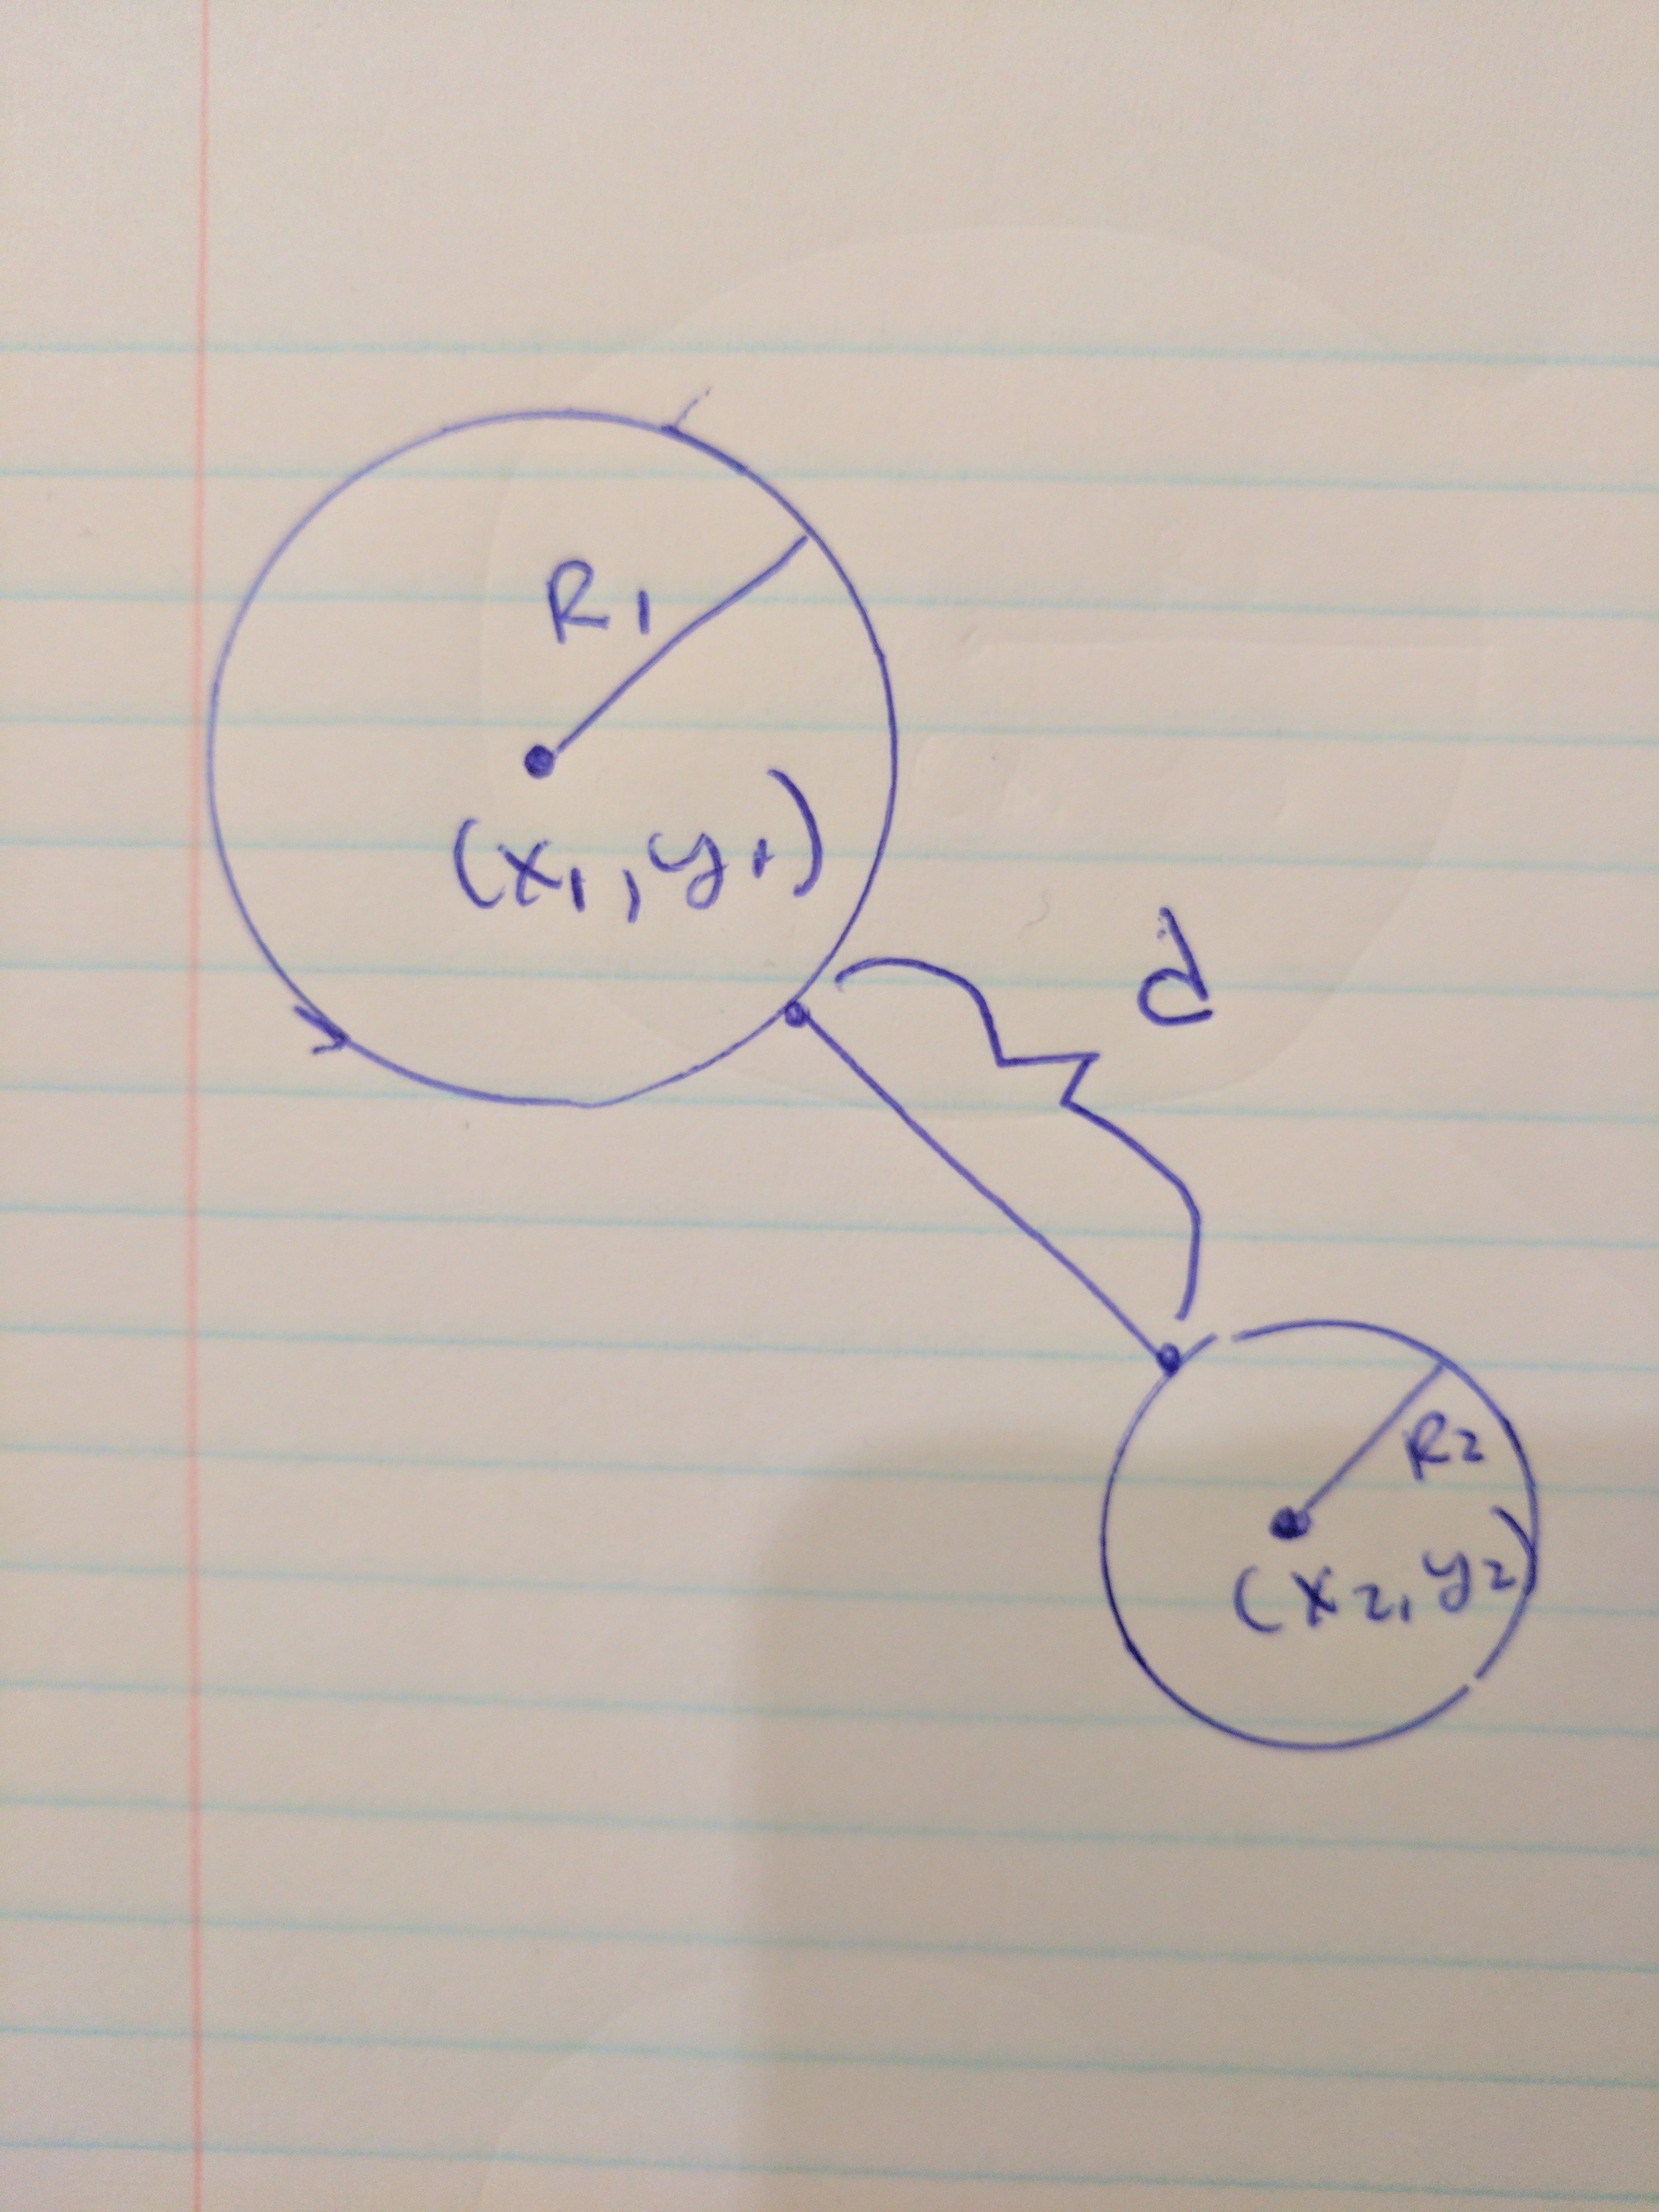 R1
(x1, y1)
d
R2
(x2, y2)